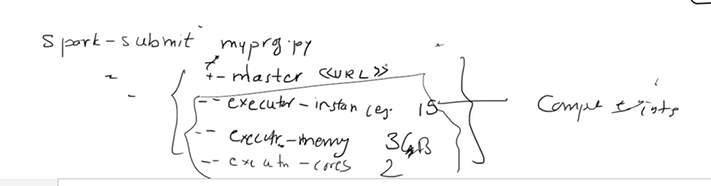 spark-submit myprg.py
--master <<URL>>
-- executor-instances 15
-- executr-memry 3GB
-- executn-cores 2